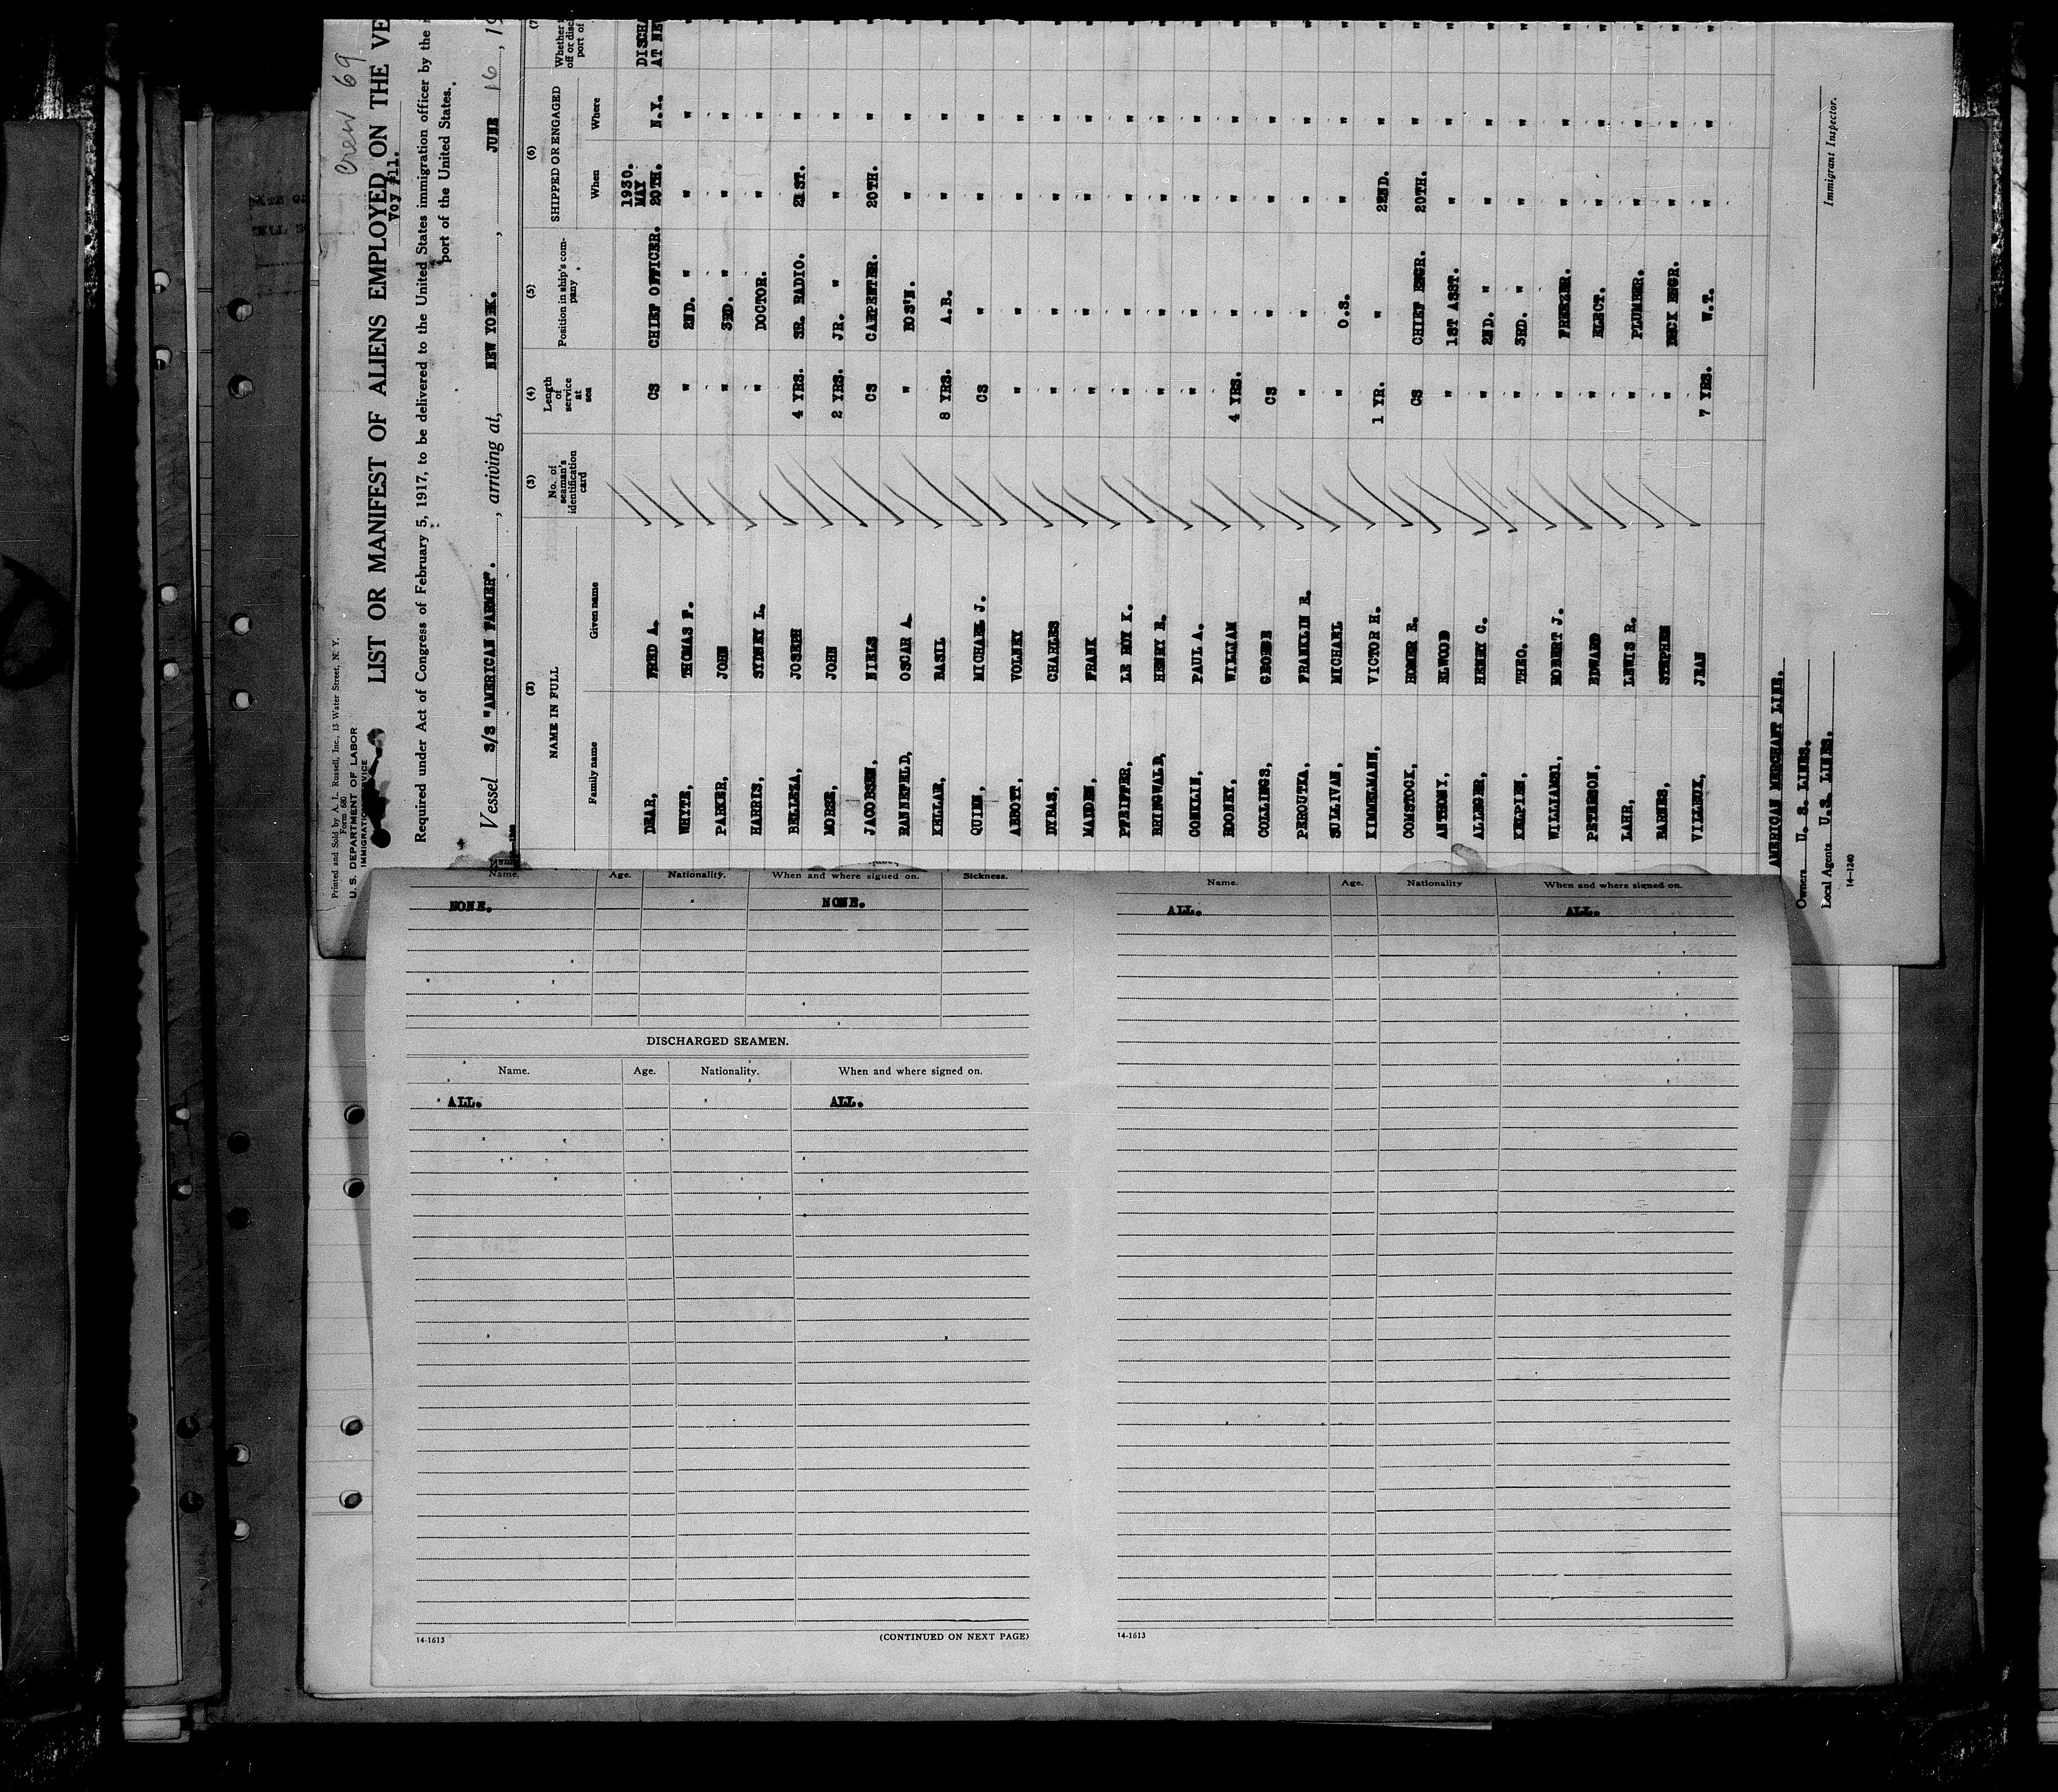 Crew 69
Printed and Sold by A. L. Russell, Inc., 13 Water Street, N. Y.
Form 680
U. S. DEPARTMENT OF LABOR
IMMIGRATION SERVICE
LIST OR MANIFEST OF ALIENS EMPLOYED ON THE VE
Voy #11.
Required under Act of Congress of February 5, 1917, to be delivered to the United States immigration officer by the
port of the United States.
Vessel S/S "AMERICAN FARMER". , arriving at, NEW YORK. , JUNE 16, 19
(2) (3) (4) (5) (6) (7)
NAME IN FULL No. of seaman's identification card Length of service at sea Position in ship's company SHIPPED OR ENGAGED Whether
Family name Given name When Where off or disch port of
1930. DISCHA
MAY AT NE
DEAR, FRED A. CS CHIEF OFFICER. 20TH. N.Y.
WHYTE, THOMAS F. " 2ND. " " " "
PARKER, JOHN " 3RD. " " " "
HARRIS, SYDNEY L. " DOCTOR. " " "
BELEZA, JOSEPH 4 YRS. SR. RADIO. 21ST. " "
MORSE, JOHN 2 YRS. JR. " " " "
JACOBSEN, NIELS CS CARPENTER. 20TH. " "
RANNEFELD, OSCAR A. " BOS'N. " " "
KELLAR, BASIL 8 YRS. A.B. " " "
QUINN, MICHAEL J. CS " " " "
ABBOTT, VOLNEY " " " " "
DYBAS, CHARLES " " " " "
MADDEN, FRANK " " " " "
PFEIFFER, LE ROY K. " " " " "
BRINGWALD, HENRY R. " " " " "
CONKLIN, PAUL A. " " " " "
ROONEY, WILLIAM 4 YRS. " " " "
COLLINGS, GEORGE CS " " " "
PEROUTKA, FRANKLIN R. " " " " "
SULLIVAN, MICHAEL " O.S. " " "
KIMMELMANN, VICTOR H. 1 YR. " 22ND. " "
COMSTOCK, HOMER R. CS CHIEF ENGR. 20TH. " "
ANTHONY, ELWOOD " 1ST ASST. " " "
ALLEGER, HENRY C. " 2ND. " " " "
KELPIEN, THEO. " 3RD. " " " "
WILLIAMS1, ROBERT J. " FREEZER. " " "
PETERSON, EDWARD " ELECT. " " "
LAHR, LEWIS R. " PLUMBER. " " "
BARNES, STEPHEN " DECK ENGR. " " "
VILLEUX, JEAN 7 YRS. W.T. " " "
AMERICAN MERCHANT LINE.
Owners U. S. LINES.
Local Agents U.S. LINES.
14—1240
Immigrant Inspector.
Name. Age. Nationality. When and where signed on. Sickness.
NONE. NONE.
DISCHARGED SEAMEN.
Name. Age. Nationality. When and where signed on.
ALL. ALL.
14-1613 (CONTINUED ON NEXT PAGE)
Name. Age. Nationality When and where signed on.
ALL. ALL.
14-1613